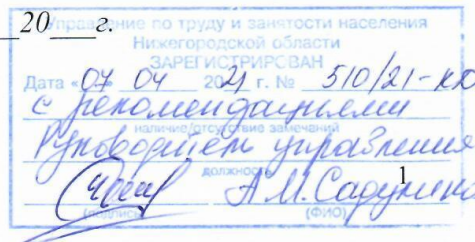 20 г.
Управление по труду и занятости населения
Нижегородской области
ЗАРЕГИСТРИРОВАН
Дата «07» 04 2021 г. № 510/21-КД
с рекомендациями
наличие/отсутствие замечаний
Руководитель управления
должность
А.М. Садулина
(подпись) (ФИО)
1